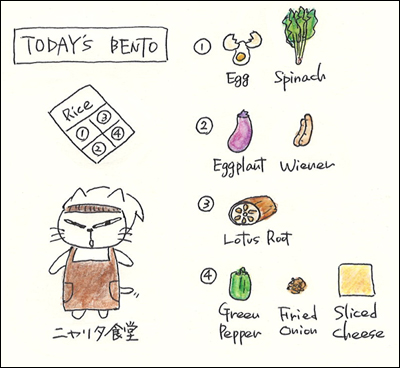 TODAY'S BENTO
Rice
① ③
② ④
ニャリタ食堂
①
Egg Spinach
②
Eggplant Wiener
③
Lotus Root
④
Green Pepper
Fried Onion
Sliced Cheese